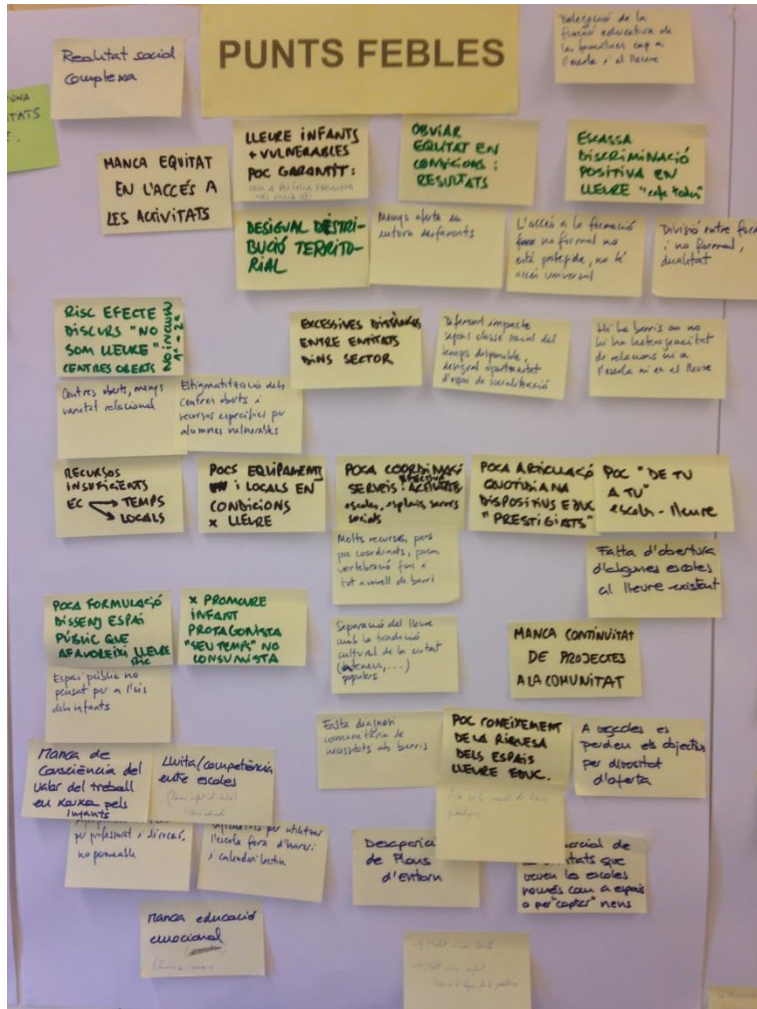 PUNTS FEBLES
Realitat social
complexa
Delegació de la
funció educativa de
les famílies cap a
l'escola i el lleure
TATS
MANCA EQUITAT
EN L'ACCÉS A
LES ACTIVITATS
LLEURE INFANTS
+ VULNERABLES
POC GARANTIT:
OBVIAR
EQUITAT EN
CONDICIONS i
RESULTATS
ESCASSA
DISCRIMINACIÓ
POSITIVA EN
LLEURE "café todos"
DESIGUAL DISTRI-
BUCIÓ TERRITO-
RIAL
Menys oferta en
entorn desfavorits
L'accés a la formació
no formal no
està protegida, no té
accés universal
Divisió entre form
i no formal,
dualitat
RISC EFECTE
DISCURS "NO
SOM LLEURE"
CENTRES OBERTS
NO INCLUSIU
1ª - 2ª
EXCESSIVES DISTÀNCIES
ENTRE ENTITATS
DINS SECTOR
Diferent impacte
segons classe social del
temps disponible,
desigual oportunitat
d'espai de socialització
Hi ha barris on no
hi ha heterogeneitat
de relacions ni a
l'escola ni en el lleure
Centres oberts, menys
varietat relacional
Estigmatització dels
centres oberts i
recursos específics per
alumnes vulnerables
RECURSOS
INSUFICIENTS
EC → TEMPS
→ LOCALS
POCS EQUIPAMENTS
i LOCALS EN
CONDICIONS
x LLEURE
POCA COORDINACIÓ
EFECTIVA
SERVEIS i ACTIVITATS
escoles, esplais, serveis
socials
POCA ARTICULACIÓ
QUOTIDIANA
DISPOSITIUS EDUC
"PRESTIGIATS"
POC "DE TU
A TU"
escoles - lleure
Molts recursos, però
poc coordinats, poca
vertebració fins a
tot a nivell de barri
Falta d'obertura
d'algunes escoles
al lleure existent
POCA FORMULACIÓ
DISSENY ESPAI
PÚBLIC QUE
AFAVOREIXI LLEURE
x PROMOURE
INFANT
PROTAGONISTA
"SEU TEMPS" NO
CONSUMISTA
Separació del lleure
amb la tradició
cultural de la ciutat
(ateneus,...)
populars
MANCA CONTINUITAT
DE PROJECTES
A LA COMUNITAT
Espai públic no
pensat per a l'ús
dels infants
Falta diagnosi
comunitària de
necessitats als barris
POC CONEIXEMENT
DE LA RIQUESA
DELS ESPAIS
LLEURE EDUC.
A vegades es
perden els objectius
per diversitat
d'oferta
Manca de
Consciència del
valor del treball
en xarxa pels
infants
Lluita/competència
entre escoles
per professorat i direcció,
no permeable
per utilitzar
l'escola fora d'horari
i calendari lectiu
Desaparició
de Plans
d'entorn
entitats que
veuen les escoles
només com a espais
o per "captar" nens
Manca educació
emocional